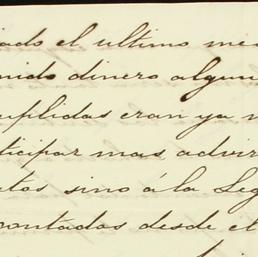 iado el ultimo me
nido dinero algun
uplidas eran ya
ticipar mas advir
tos sino á la Leg
contadas desde el